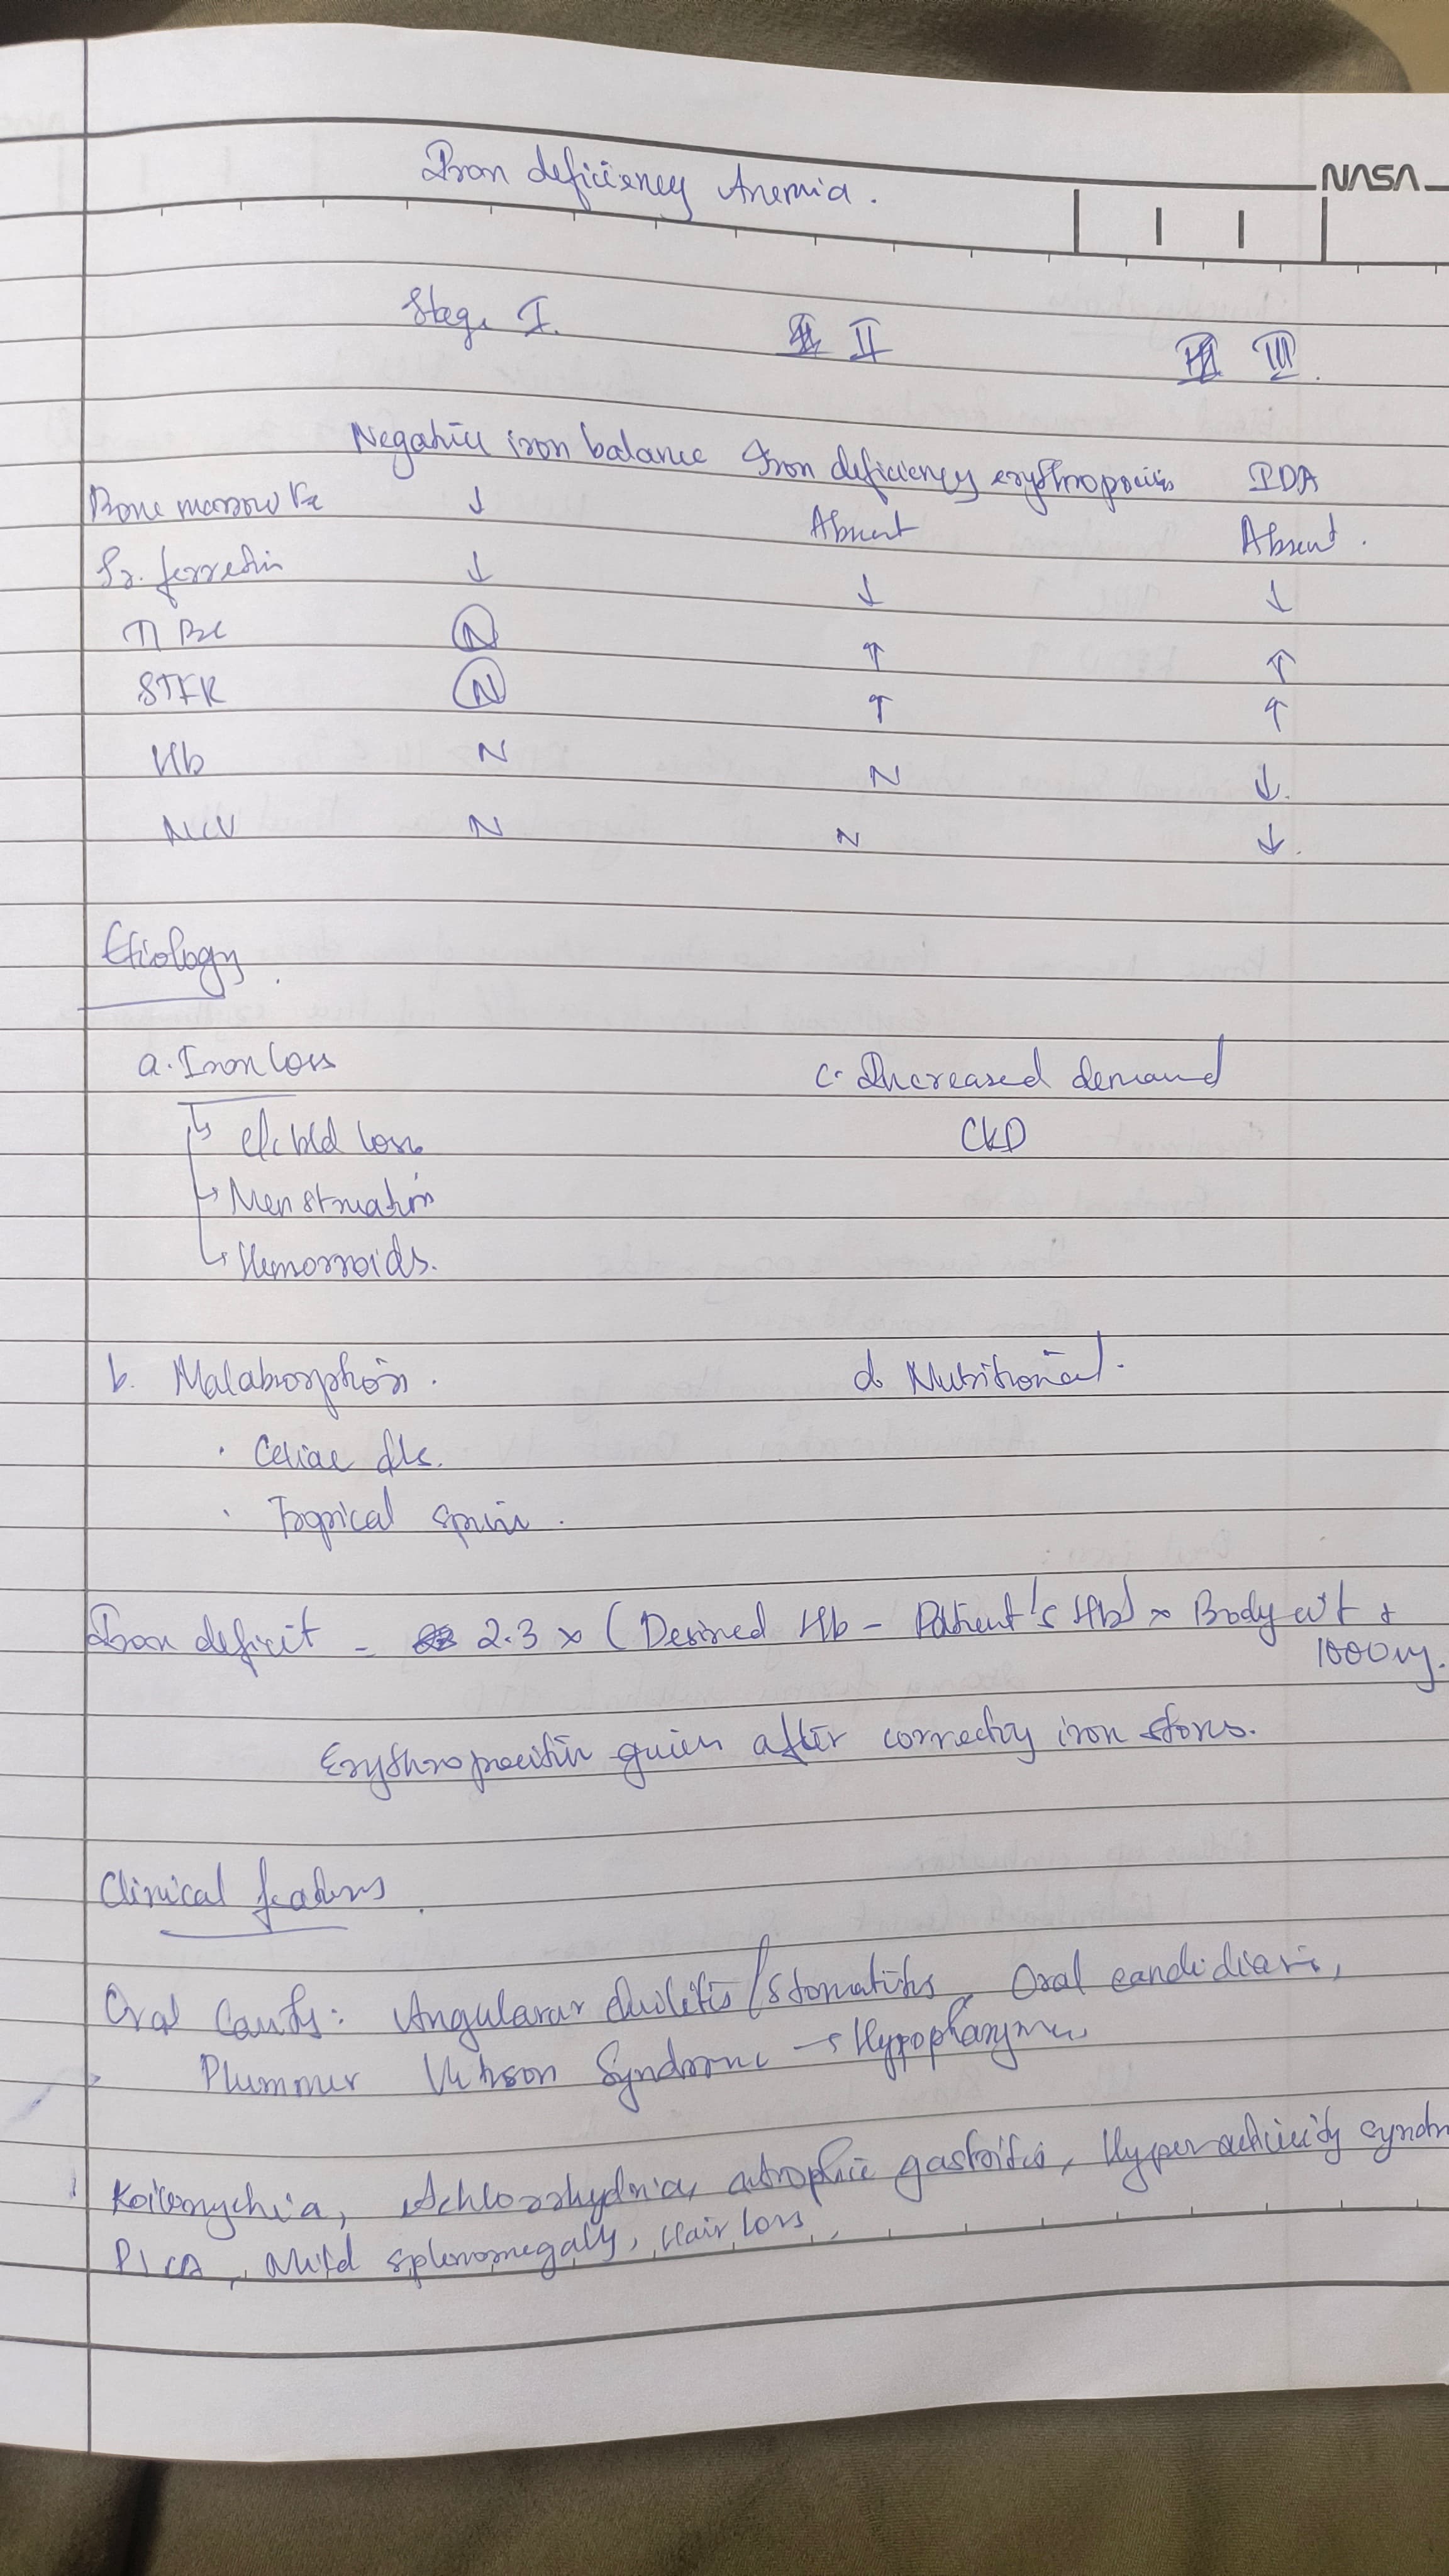 NASA
Iron deficiency Anemia.
Stage I. II III.
Negative iron balance Iron deficiency erythropoiesis IDA
Bone marrow Fe ↓ Absent Absent.
Sr. ferredin ↓ ↓ ↓
TIBC N ↑ ↑
STFR N ↑ ↑
Hb N N ↓.
MCV N N ↓.
Etiology.
a. Iron loss c. Increased demand
↳ bld loss CKD
↳ Menstruation
↳ Hemorroids.
b. Malabsorption. d. Nutritional.
· Celiac ds.
· Tropical sprue.
Iron deficit - 2.3 x (Desired Hb - Patient's Hb) x Body wt +
1000mg.
Erythropoeitin given after correcting iron stores.
Clinical features.
Oral Cavity: Angularar cheilitis/stomatitis, Oral candidiasis,
Plummer Vinson Syndrome → Hypopharynx
Koilonychia, Achlorrhydria, atrophic gastritis, Hyperactivity syndr
PICA, Mild splenomegaly, Hair loss,